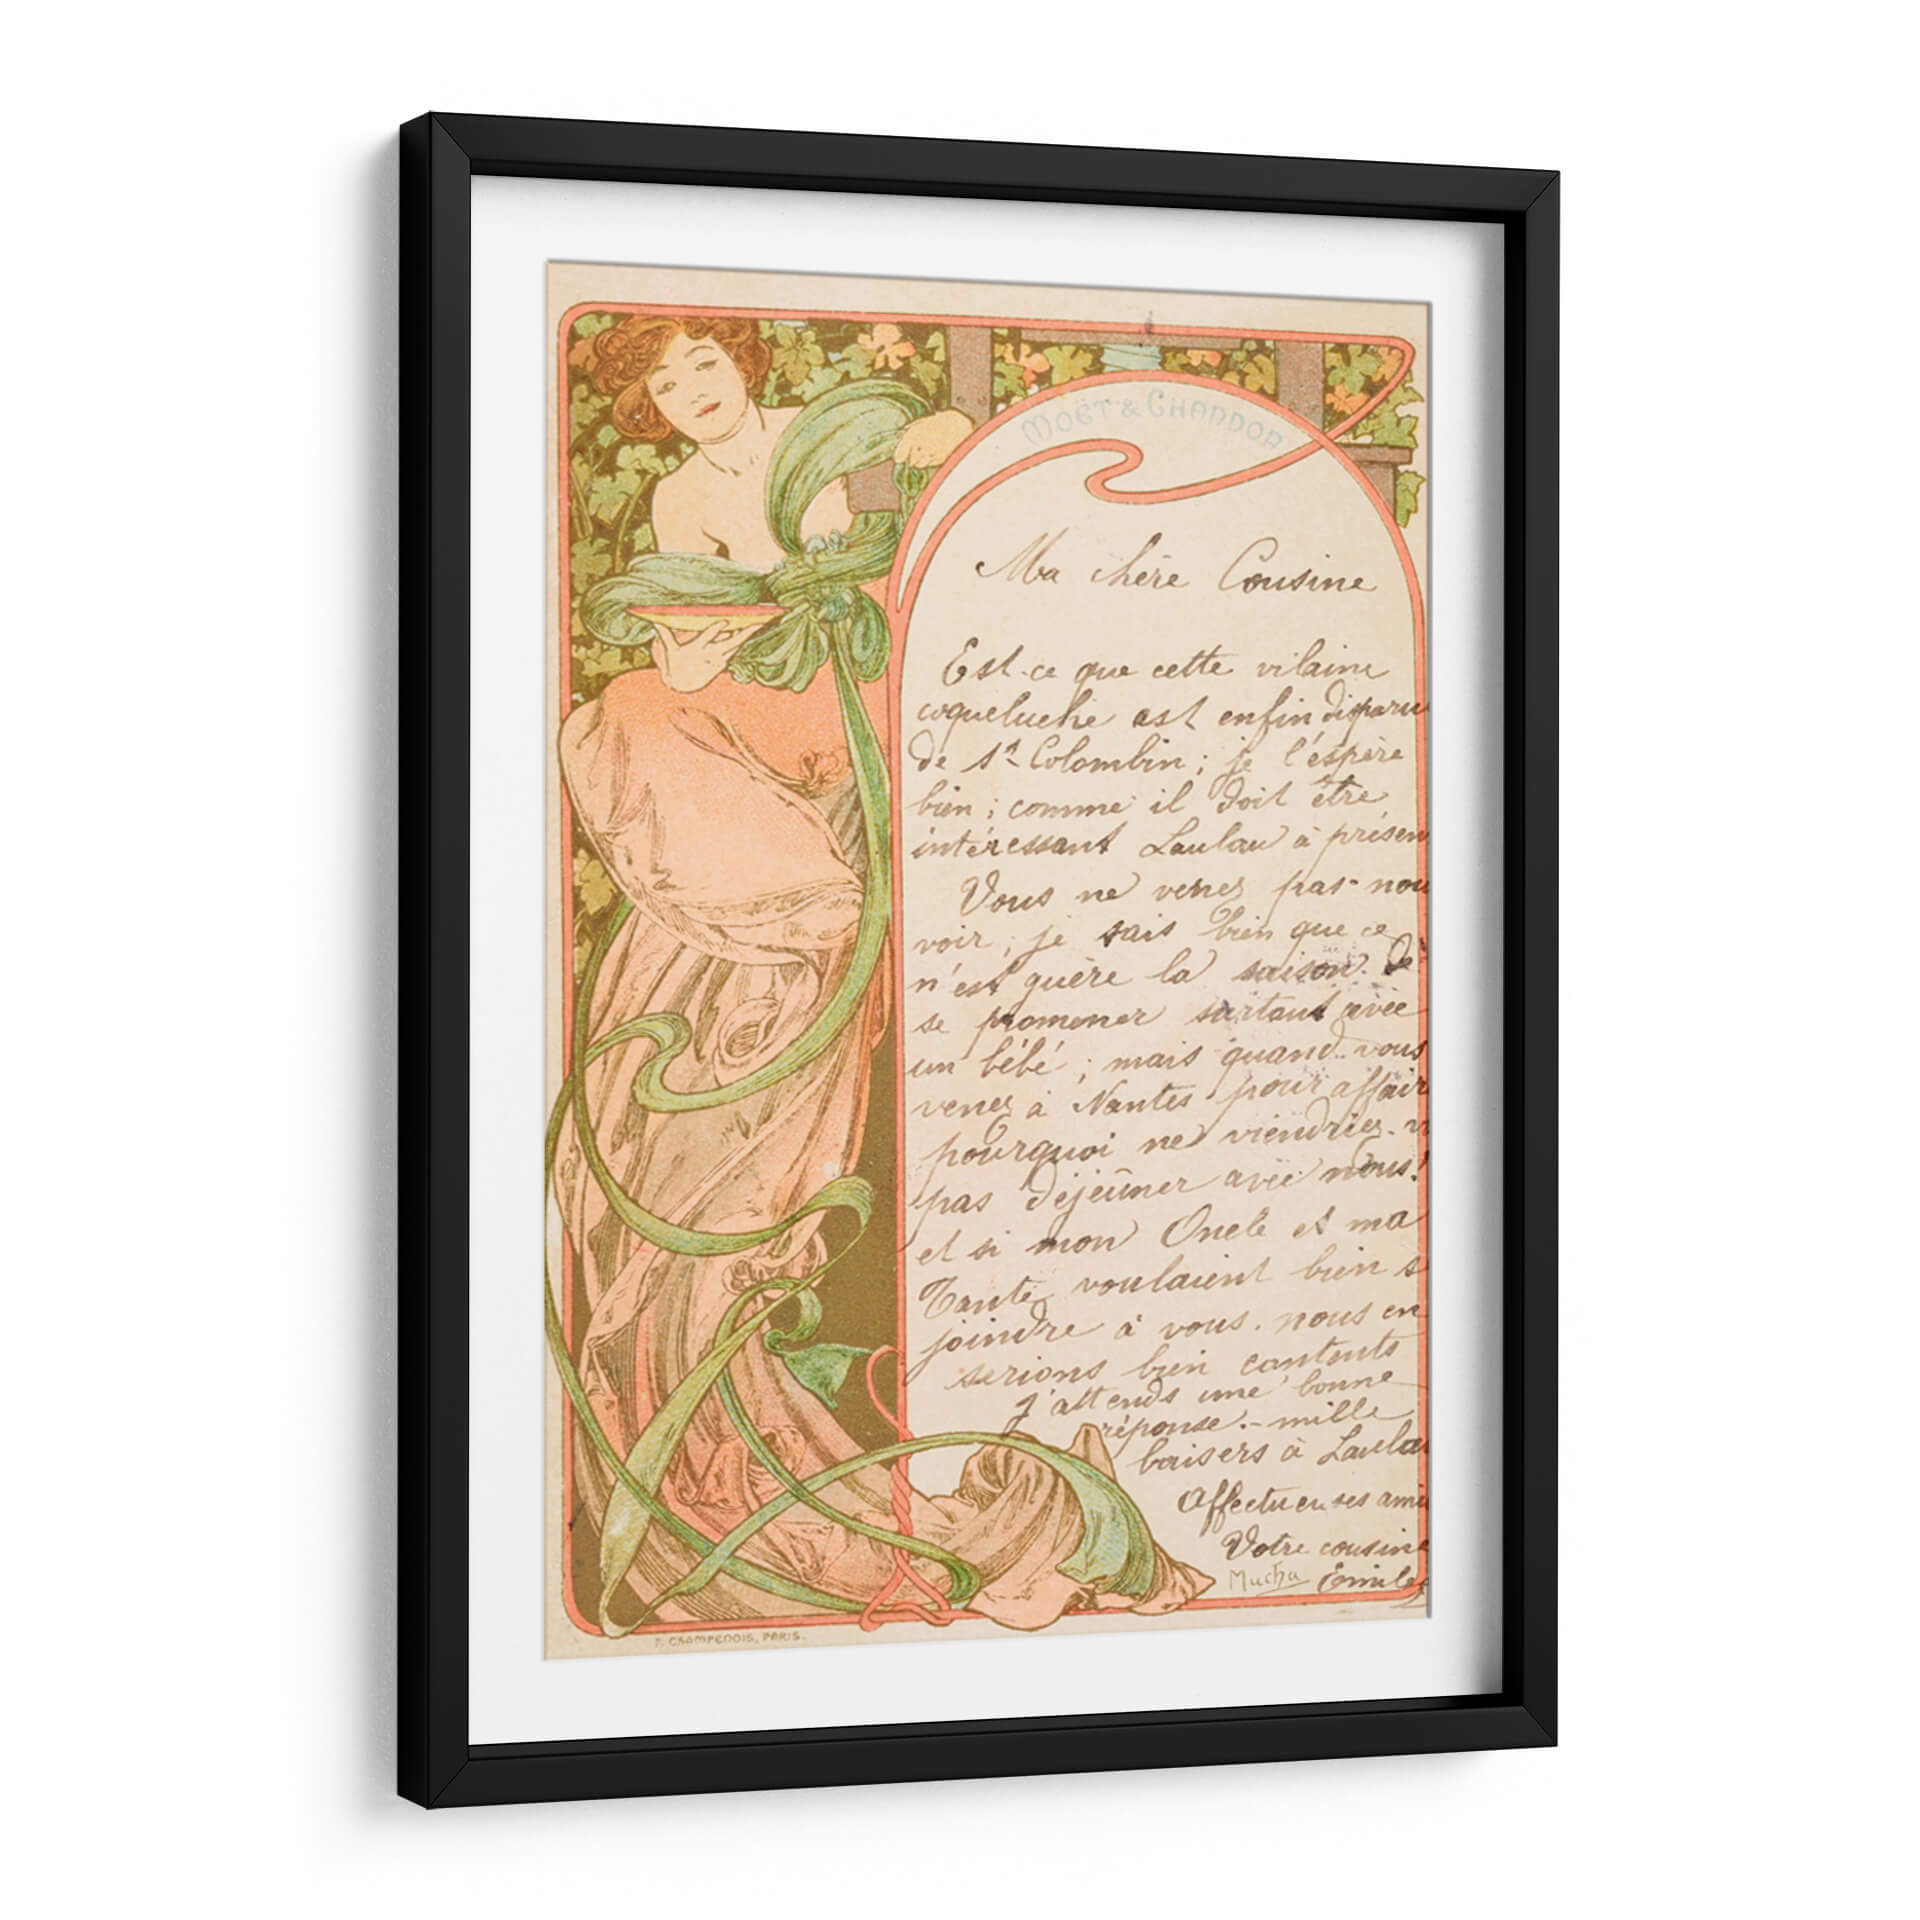 MOËT & CHANDON
Ma chère Cousine
Est-ce que cette vilaine
coqueluche est enfin disparu
de St Colombin ; je l'espère
bien ; comme il doit être
intéressant Laulau à présen
Vous ne venez pas nou
voir ; je sais bien que ce
n'est guère la saison de
se promener surtout avec
un bébé ; mais quand vous
venez à Nantes pour affair
pourquoi ne viendriez-v
pas déjeûner avec nous!
et si mon Oncle et ma
Tante voulaient bien s
joindre à vous. nous en
serions bien contents
J'attends une bonne
réponse.- mille
baisers à Laulau
Affectueuses ami
Votre cousine
Mucha Emilie
F. CHAMPENOIS, PARIS.